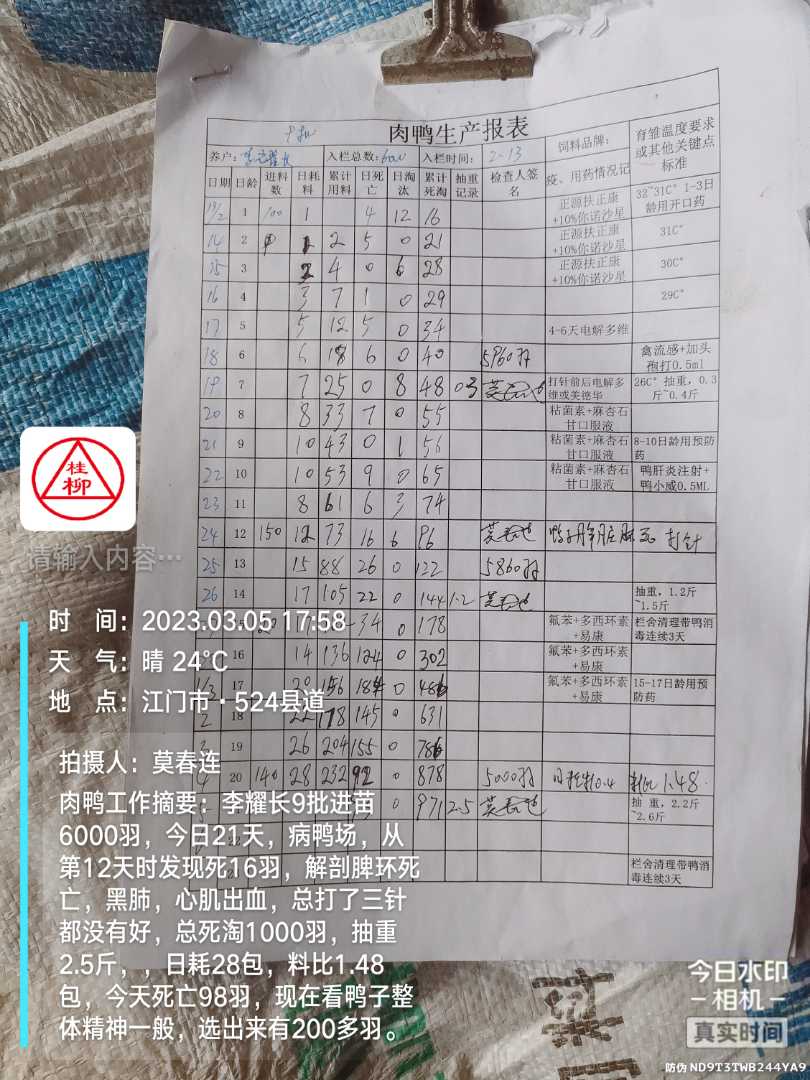 肉鸭生产报表
养户: 入栏总数:6000 入栏时间: 2-13 饲料品牌: 育雏温度要求或其他关键点标准
日期 日龄 进料数 日耗料 累计用料 日死亡 日淘汰 累计死淘 抽重记录 检查人签名 疫、用药情况记
13/2 1 100 1 4 12 16 正源扶正康+10%你诺沙星 32~31C° 1-3日龄用开口药
14 2 2 5 0 21 正源扶正康+10%你诺沙星 31C°
15 3 2 4 0 6 28 正源扶正康+10%你诺沙星 30C°
16 4 3 7 1 0 29 29C°
17 5 5 12 5 0 34 4-6天电解多维
18 6 6 18 6 0 40 5960羽 禽流感+加头孢打0.5ml
19 7 7 25 0 8 48 03 莫春连 打针前后电解多维或美德华 26C° 抽重，0.3斤~0.4斤
20 8 8 33 7 0 55 粘菌素+麻杏石甘口服液
21 9 10 43 0 1 56 粘菌素+麻杏石甘口服液 8-10日龄用预防药
22 10 10 53 9 0 65 粘菌素+麻杏石甘口服液 鸭肝炎注射+鸭小威0.5ML
23 11 8 61 6 3 74
24 12 150 12 73 16 6 96 莫春连 打针
25 13 15 88 26 0 122 5860羽
26 14 17 105 22 0 144 1.2 莫春连 抽重，1.2斤~1.5斤
34 0 178 氟苯+多西环素+易康 栏舍清理带鸭消毒连续3天
16 14 136 124 0 302 氟苯+多西环素+易康
1/3 17 20 156 184 0 486 氟苯+多西环素+易康 15-17日龄用预防药
2 18 22 178 145 0 631
3 19 26 204 155 0 786
4 20 140 28 232 92 0 878 5000羽 1.48
971 2.5 莫春连 抽 重，2.2斤~2.6斤
栏舍清理带鸭消毒连续3天
桂
柳
请输入内容…
时 间：2023.03.05 17:58
天 气：晴 24℃
地 点：江门市·524县道
拍摄人：莫春连
肉鸭工作摘要：李耀长9批进苗
6000羽，今日21天，病鸭场，从
第12天时发现死16羽，解剖脾坏死
亡，黑肺，心肌出血，总打了三针
都没有好，总死淘1000羽，抽重
2.5斤，，日耗28包，料比1.48
包，今天死亡98羽，现在看鸭子整
体精神一般，选出来有200多羽。
今日水印
-相机-
真实时间
防伪 ND9T3TWB244YA9